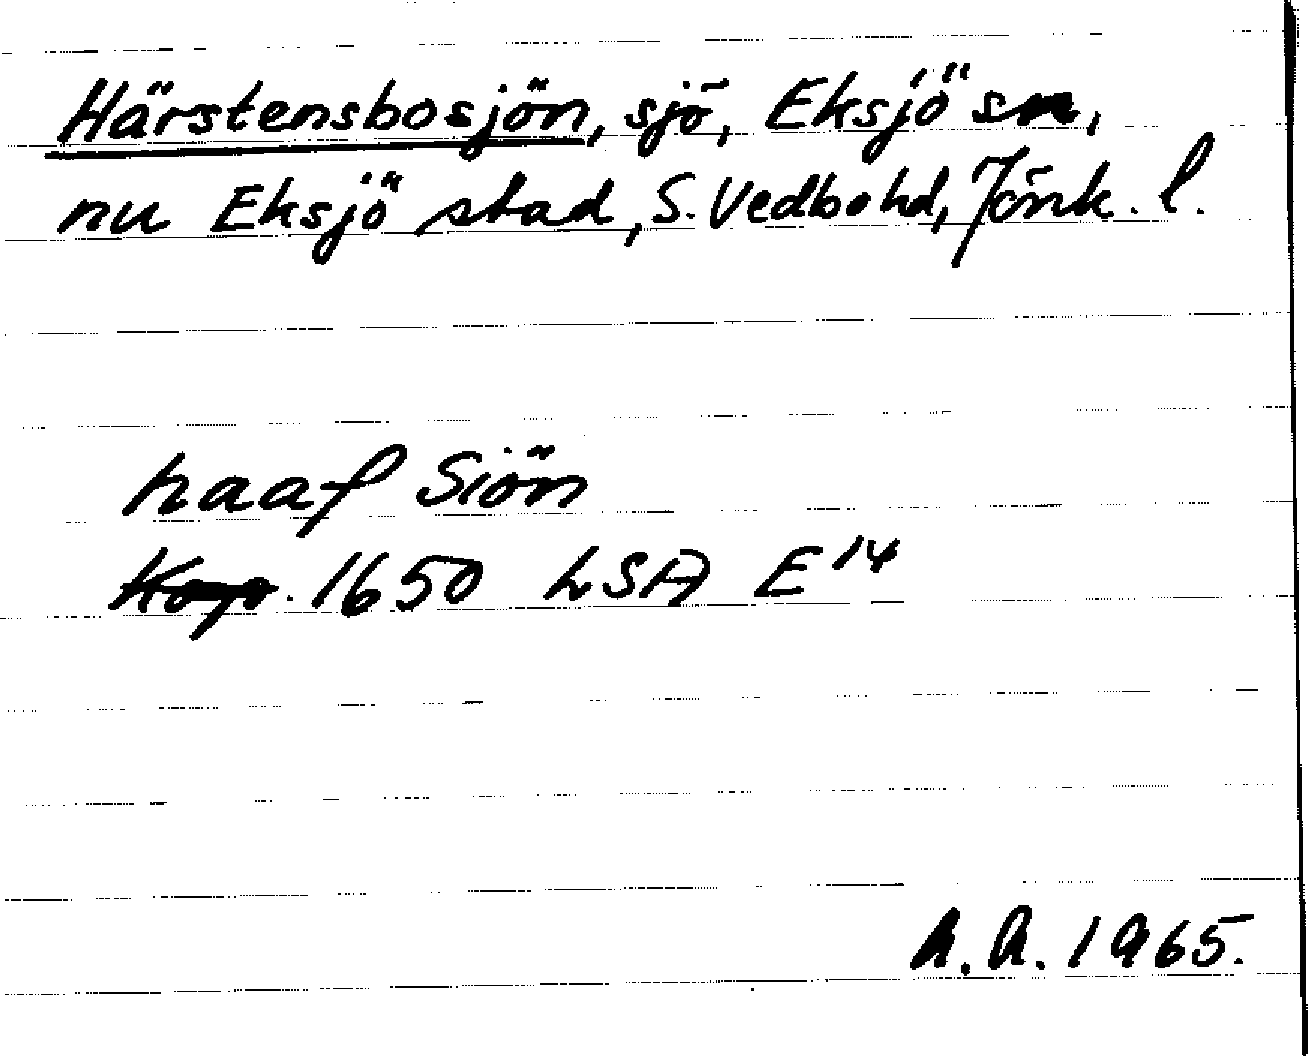 Härstensbosjön, sjö, Eksjö sn,
nu Eksjö stad, S. Vedbo hd, Jönk. l.
haaf Siön
1650 LSA E 14
A.A. 1965.